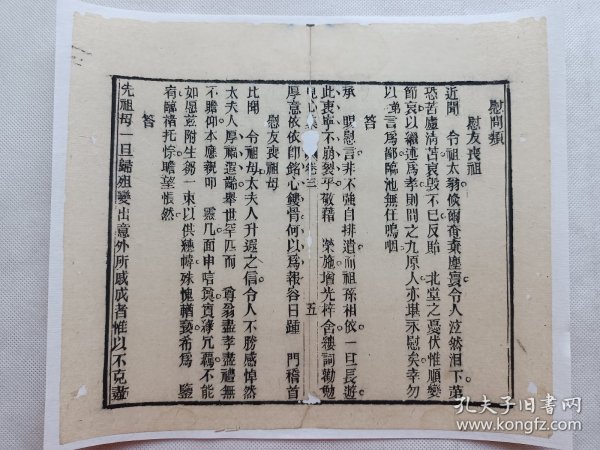 慰問類
慰友喪祖
近聞　令祖太翁倏爾奄棄塵寰令人泫然泪下第
恐苦廬滴苦哀毀不已反貽　北堂之憂伏惟順變
節哀以繼述爲孝則聞之九原人亦堪永慰矣幸勿
以瑣言爲鄙臨池無任嗚咽
答
承　賜慰言非不強自排遣而祖孫相依一旦長逝
此衷寧不崩裂乎敬藉　榮施增光梓舍縷詞勸勉
厚意依依卽銘心鏤骨何以爲報容日踵　門稽首
慰友喪祖母
比聞　令祖母太夫人升遐之信令人不勝感悼然
太夫人厚福遐齡舉世罕匹而　尊翁盡孝盡禮無
不瞻仰本應親叩　靈几面申唁奠實滌冗羈不能
如愿茲附生芻一束以供穗幃殊愧輶褻希爲　鑒
宥臨楮托悰瞻望悵然
答
先祖母一旦歸殂變出意外所感戚者惟以不克盡
五
孔夫子旧书网
www.kongfz.com